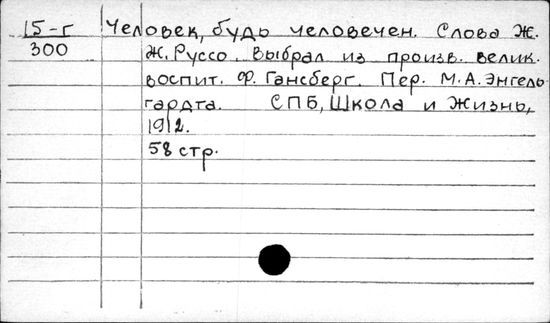 15-г Человек, будь человечен. Слова Ж.
300 Ж. Руссо. Выбрал из произв. велик.
воспит. Ф. Гансберг. Пер. М.А. Энгель-
гардта. СПБ, Школа и Жизнь,
1912.
58 стр.